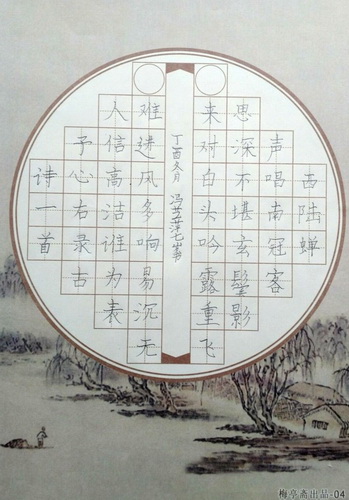 西陆蝉
声唱南冠客
思深不堪玄鬓影
来对白头吟露重飞
丁酉冬月
难进风多响易沉无
人信高洁谁为表
予心右录古
诗一首
梅亭斋出品-04